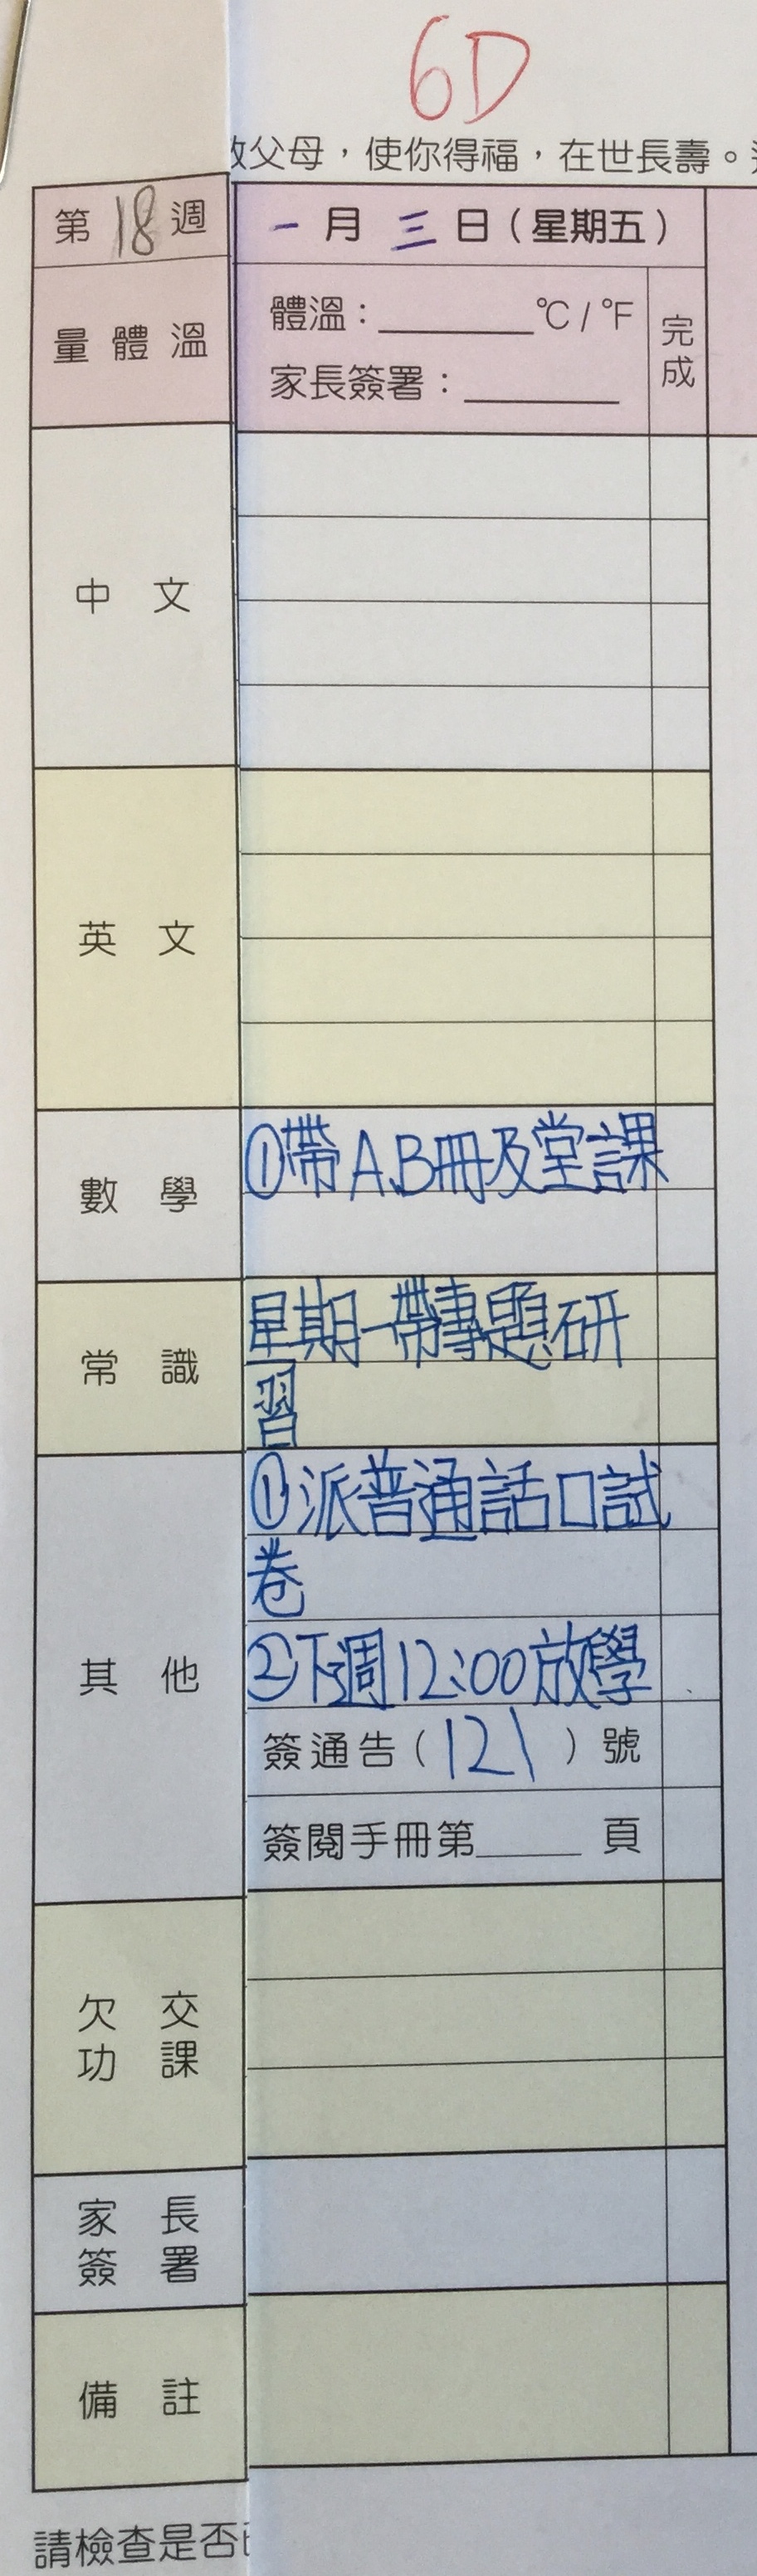 6D
父母，使你得福，在世長壽。
第18週
一月三日（星期五）
量體溫
體溫：______°C / °F
家長簽署：______
完成
中文
英文
數學
①帶A,B冊及堂課
常識
星期一帶專題研
習
其他
①派普通話口試
卷
②下週12:00放學
簽通告（121）號
簽閱手冊第____頁
欠交
功課
家長
簽署
備註
請檢查是否